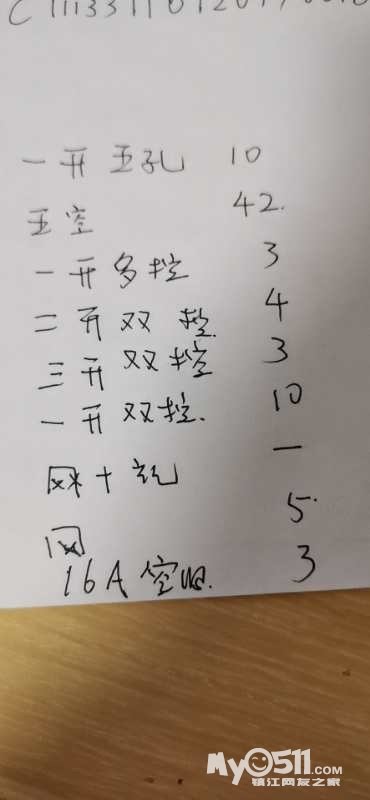 一开五孔 10
五空 42.
一开多控 3
二开双控 4
三开双控 3
一开双控. 10
网+ 一
网 5.
16A空调. 3
My0511.COM
镇江网友之家